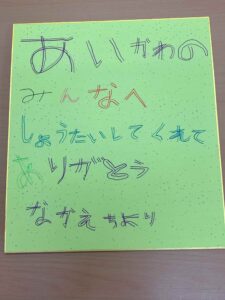 あいがわの
みんなへ
しょうたいしてくれて
ありがとう
なかえちより